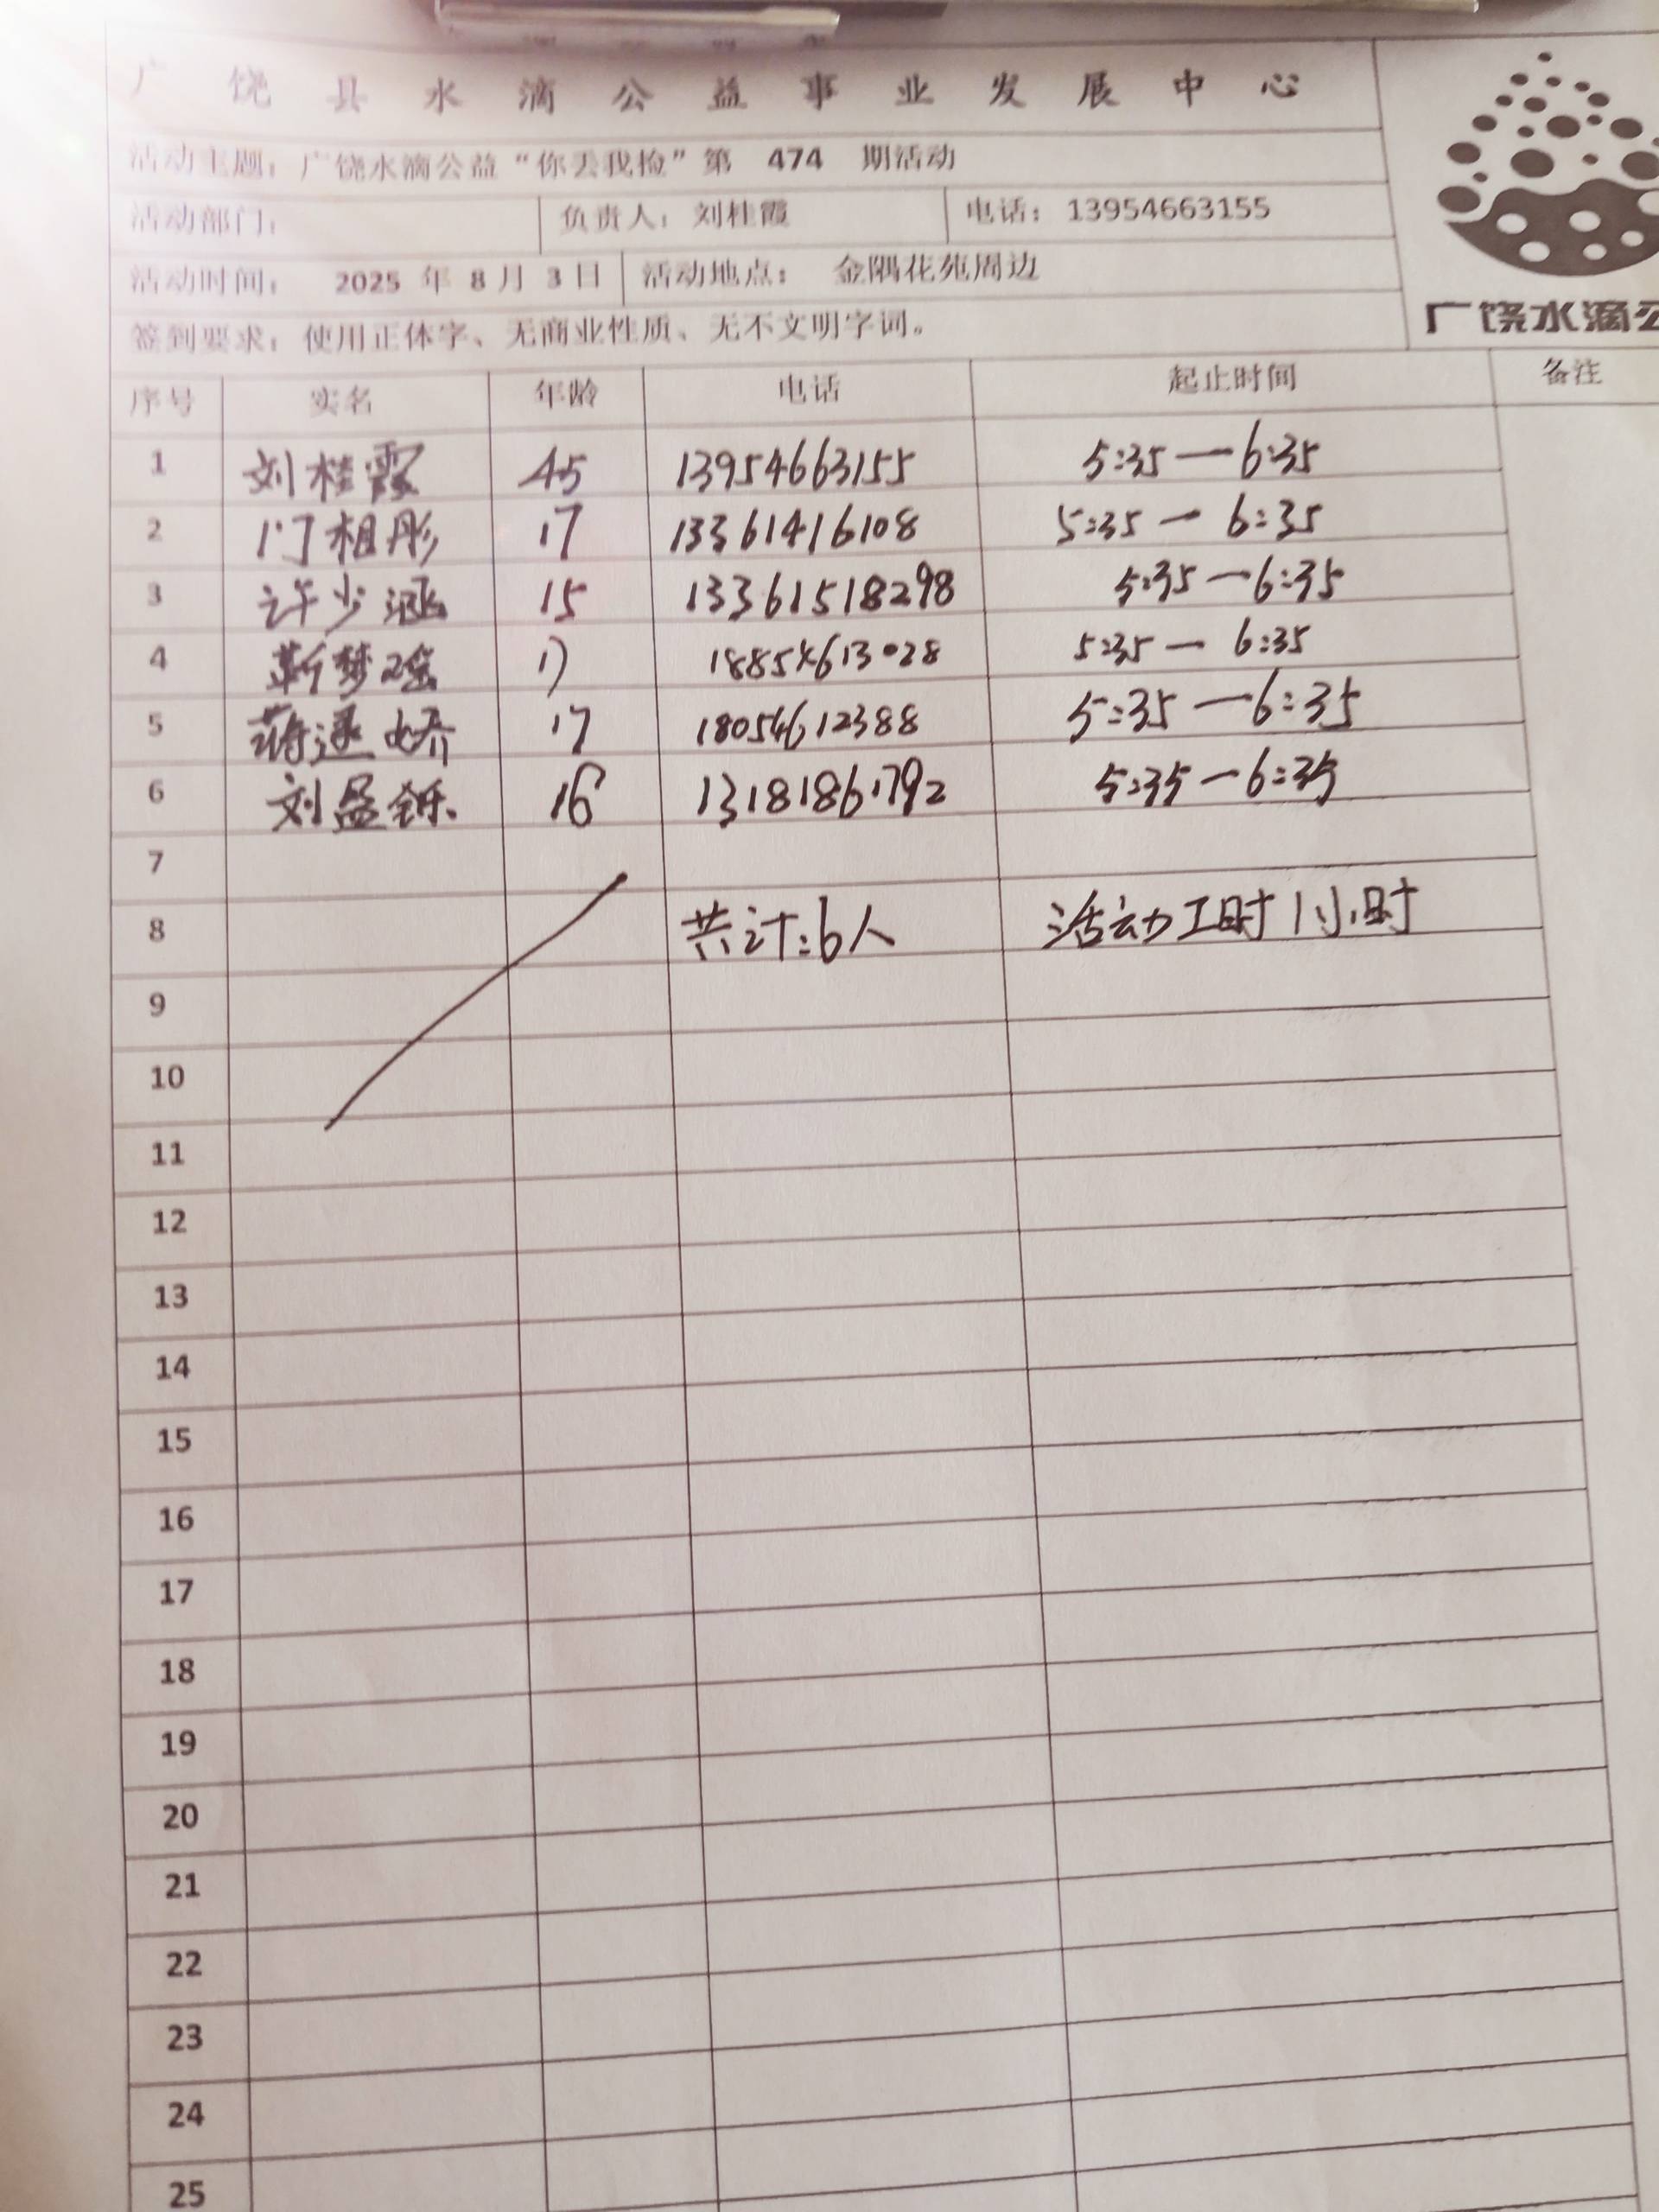 广饶县水滴公益事业发展中心
活动主题：广饶水滴公益“你丢我捡”第 474 期活动
活动部门： 负责人：刘桂霞 电话：13954663155
活动时间： 2025 年 8 月 3 日 活动地点： 金隅花苑周边
签到要求：使用正体字、无商业性质、无不文明字词。
广饶水滴公
序号 实名 年龄 电话 起止时间 备注
1 刘桂霞 45 13954663155 5:35—6:35
2 门相彤 17 13361416108 5:35—6:35
3 许少涵 15 13361518298 5:35—6:35
4 靳梦瑶 17 18854613028 5:35—6:35
5 蒋逯娇 17 18054612388 5:35—6:35
6 刘孟铄 16 13181861792 5:35—6:35
7
8 共计:6人 活动工时1小时
9
10
11
12
13
14
15
16
17
18
19
20
21
22
23
24
25